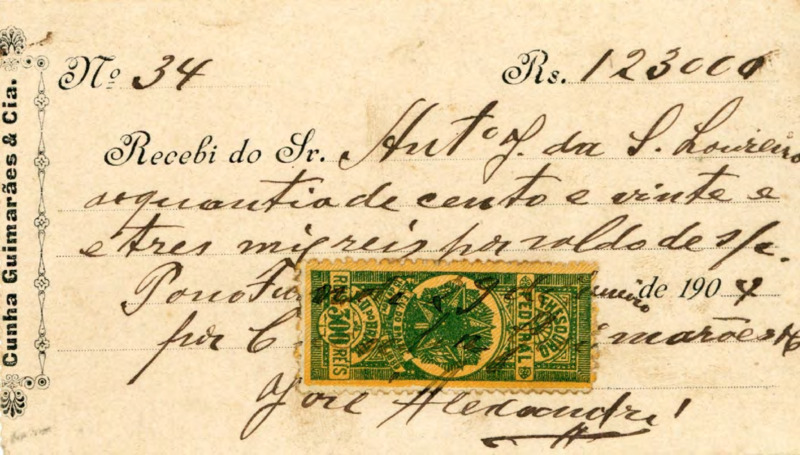 Cunha Guimarães & Cia.
Nº 34 Rs. 123000
Recebi do Sr. Antº J. da S. Loureiro
a quantia de cento e vinte e
e tres mil reis por saldo de s/c.
de 1904
por C Guimarães
José Alexandre
THESOURO
FEDERAL
300 REIS